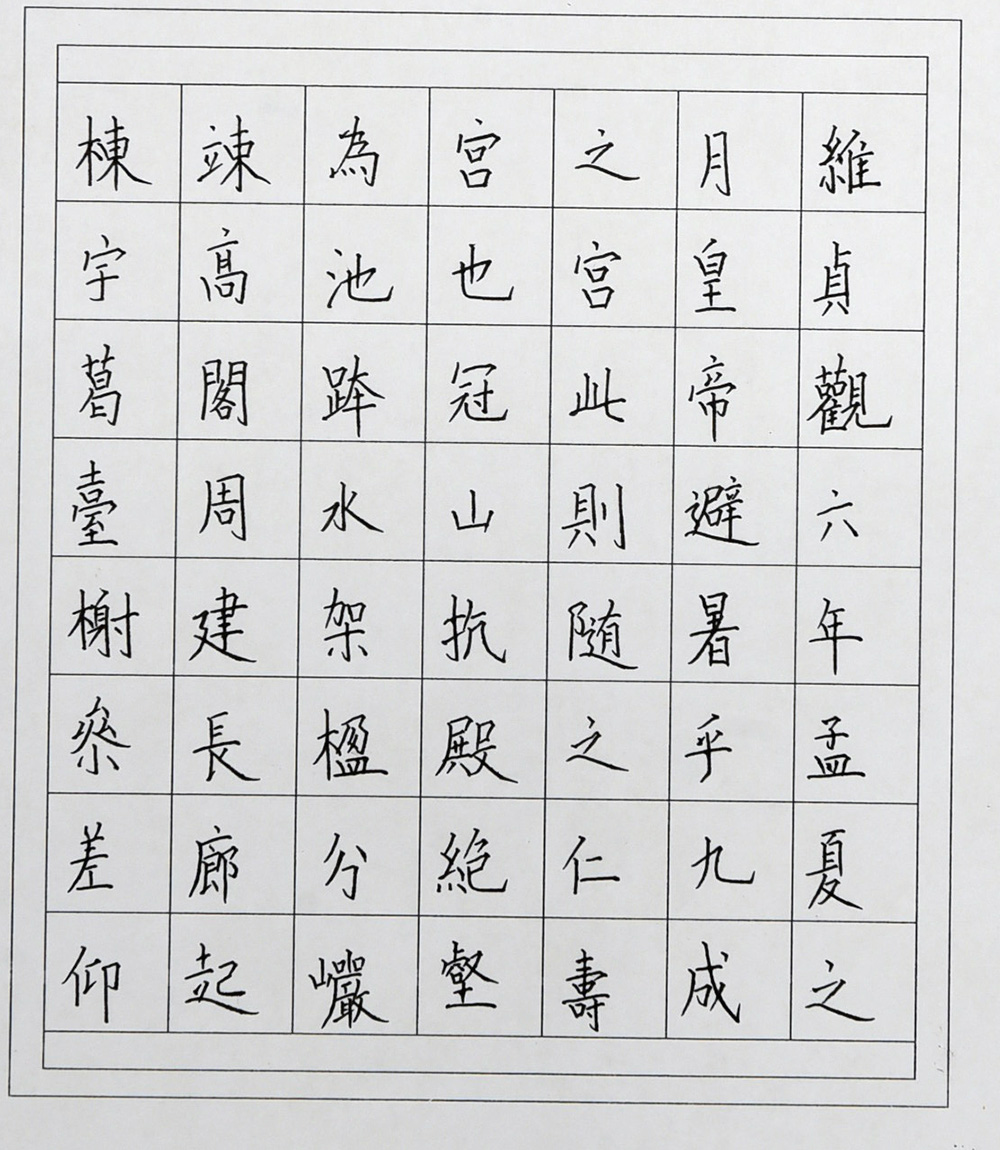 維貞觀六年孟夏之
月皇帝避暑乎九成
之宫此則随之仁壽
宫也冠山抗殿絶壑
為池跨水架楹分巗
竦髙閣周建長廊起
棟宇葛臺榭叅差仰